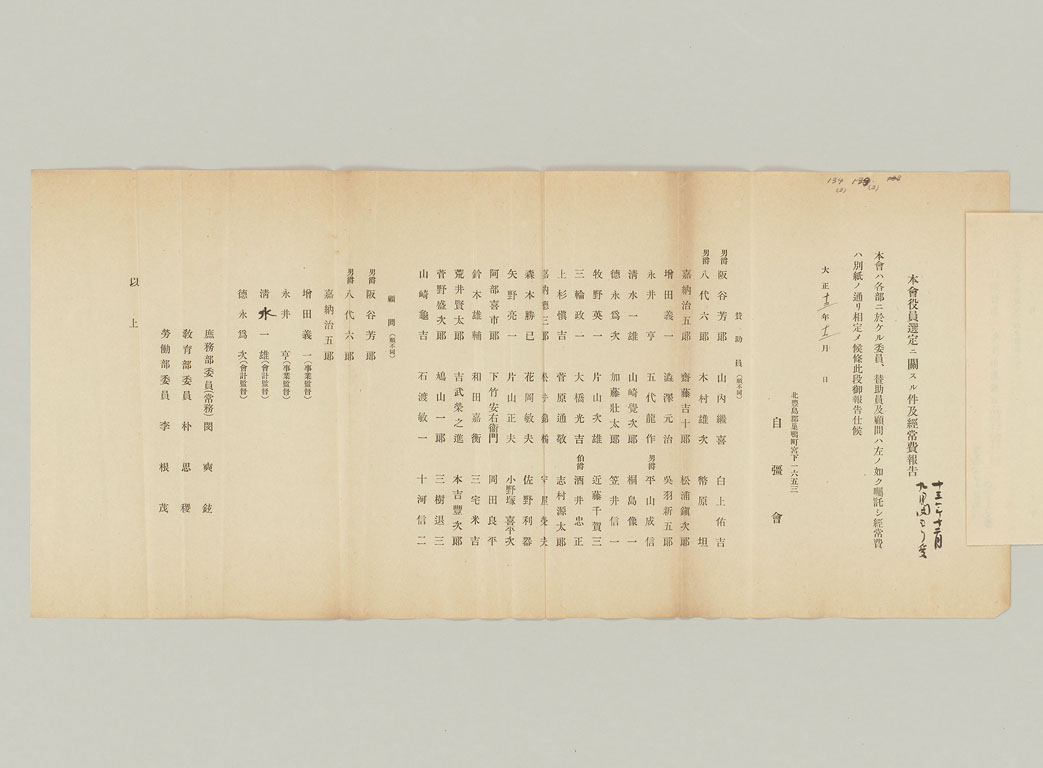 本會役員選定ニ關スル件及經常費報告
本會ハ各部ニ於ケル委員、賛助員及顧問ハ左ノ如ク囑託シ經常費
ハ別紙ノ通リ相定メ候條此段御報告仕候
大正十三年十二月 日
北豐島郡巢鴨町宮下一六五三
自彊會
賛助員(順不同)
男爵 阪谷芳郎 山内繼喜 白上佑吉
男爵 八代六郎 木村雄次 幣原坦
嘉納治五郎 齋藤吉十郎 松浦鎭次郎
增田義一 澁澤元治 吳羽新五郎
永井亨 五代龍作 男爵 平山成信
清水一雄 山崎覺次郎 桐島像一
德永爲次 加藤壯太郎 笠井信一
牧野英一 片山次雄 近藤千賀三
三輪政一 大橋光吉 伯爵 酒井忠正
上杉愼吉 菅原通敬 志村源太郎
嘉納德三郎
森本勝巳 花岡敏夫 佐野利器
矢野亮一 片山正夫 小野塚喜平次
阿部喜市郎 下竹安右衞門 岡田良平
鈴木雄輔 和田嘉衡 三宅米吉
荒井賢太郎 吉武榮之進 本吉豐次郎
菅野盛次郎 鳩山一郎 三樹退三
山崎龜吉 石渡敏一 十河信二
顧問(順不同)
男爵 阪谷芳郎
男爵 八代六郎
嘉納治五郎
增田義一(事業監督)
永井亨(事業監督)
清水一雄(會計監督)
德永爲次(會計監督)
庶務部委員(常務) 閔奭鉉
敎育部委員 朴思稷
勞働部委員 李根茂
以上